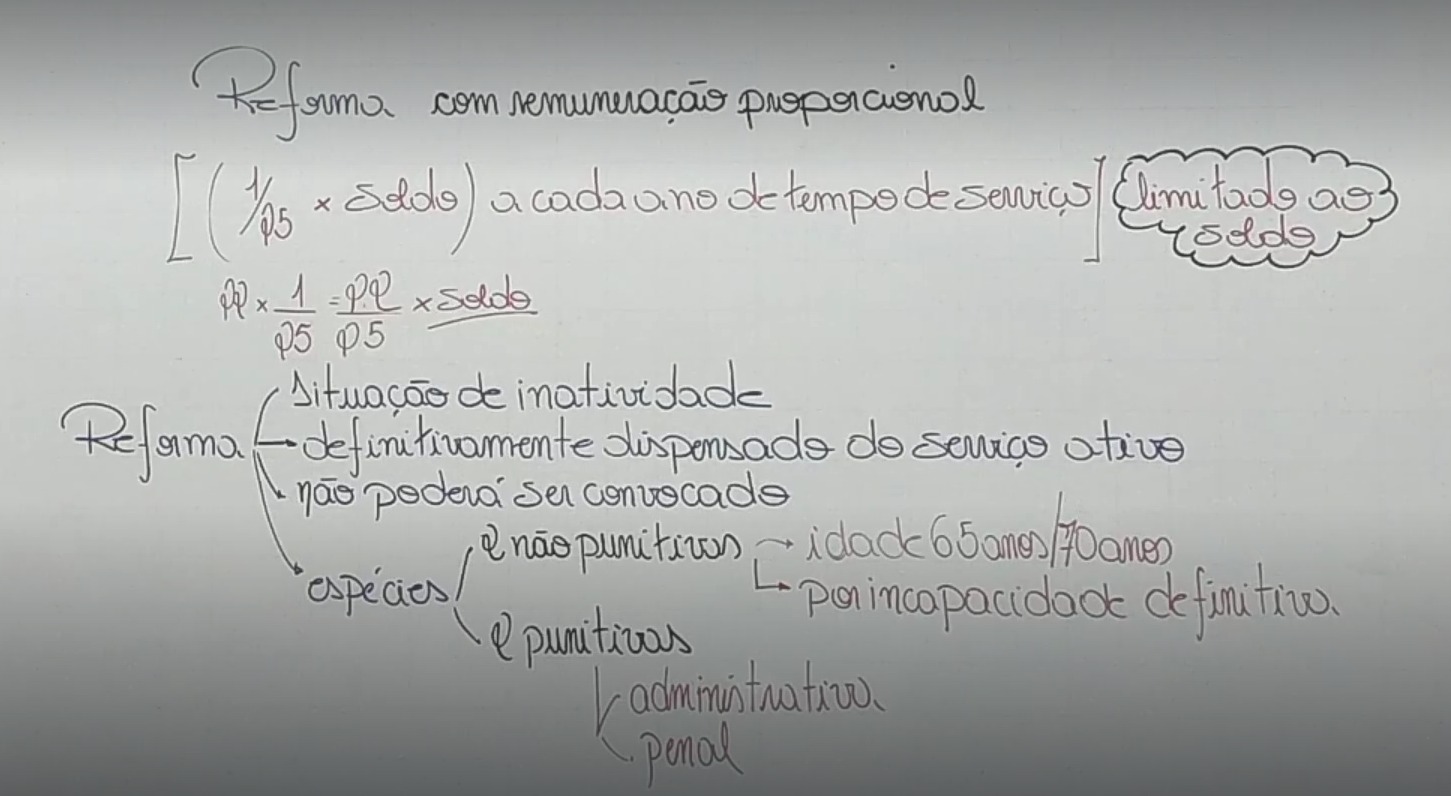 Reforma com remuneração proporcional
[(1/25 × soldo) a cada ano de tempo de serviço] limitado ao
soldo
22 × 1/25 = 22/25 × soldo
situação de inatividade
Reforma → definitivamente dispensado do serviço ativo
não poderá ser convocado
2 não punitivas → idade 65 anos/70 anos
espécies
por incapacidade definitiva.
2 punitivas
administrativa
penal